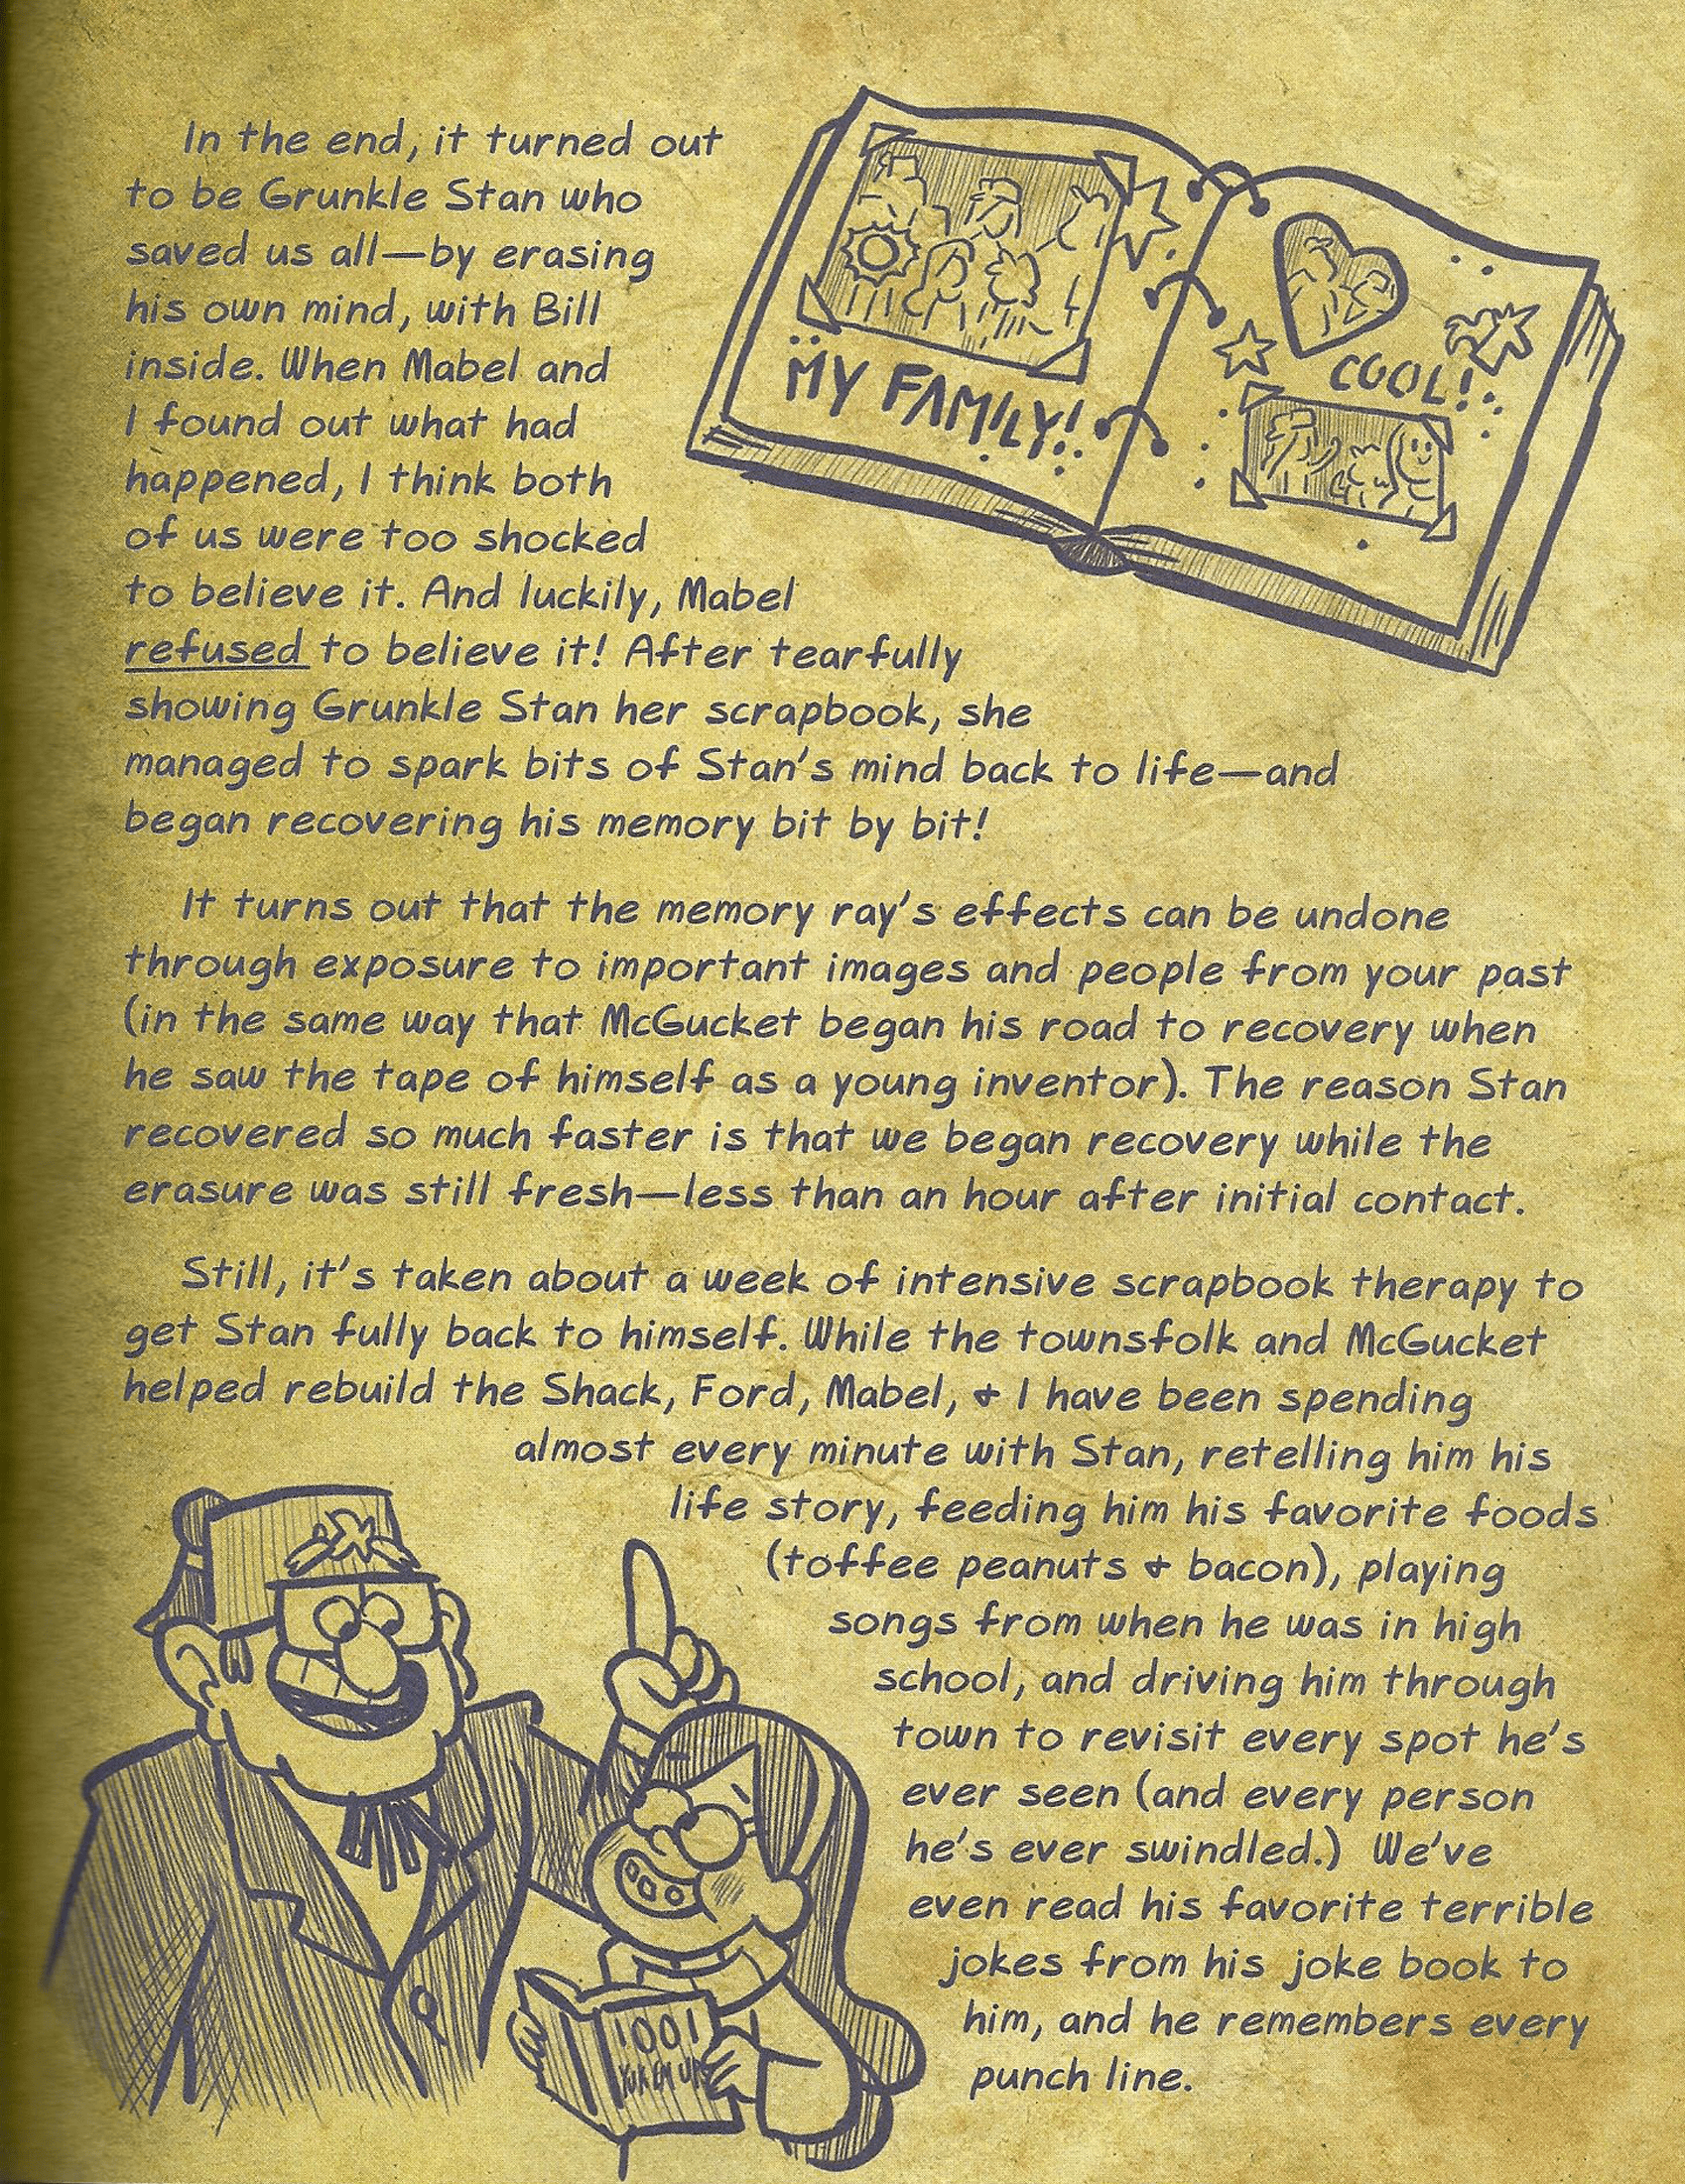 In the end, it turned out
to be Grunkle Stan who
saved us all—by erasing
his own mind, with Bill
inside. When Mabel and
I found out what had
happened, I think both
of us were too shocked
to believe it. And luckily, Mabel
refused to believe it! After tearfully
showing Grunkle Stan her scrapbook, she
managed to spark bits of Stan's mind back to life—and
began recovering his memory bit by bit!
MY FAMILY!
COOL!
It turns out that the memory ray's effects can be undone
through exposure to important images and people from your past
(in the same way that McGucket began his road to recovery when
he saw the tape of himself as a young inventor). The reason Stan
recovered so much faster is that we began recovery while the
erasure was still fresh—less than an hour after initial contact.
Still, it's taken about a week of intensive scrapbook therapy to
get Stan fully back to himself. While the townsfolk and McGucket
helped rebuild the Shack, Ford, Mabel, & I have been spending
almost every minute with Stan, retelling him his
life story, feeding him his favorite foods
(toffee peanuts & bacon), playing
songs from when he was in high
school, and driving him through
town to revisit every spot he's
ever seen (and every person
he's ever swindled.) We've
even read his favorite terrible
jokes from his joke book to
him, and he remembers every
punch line.
1001
YUK EM UPS